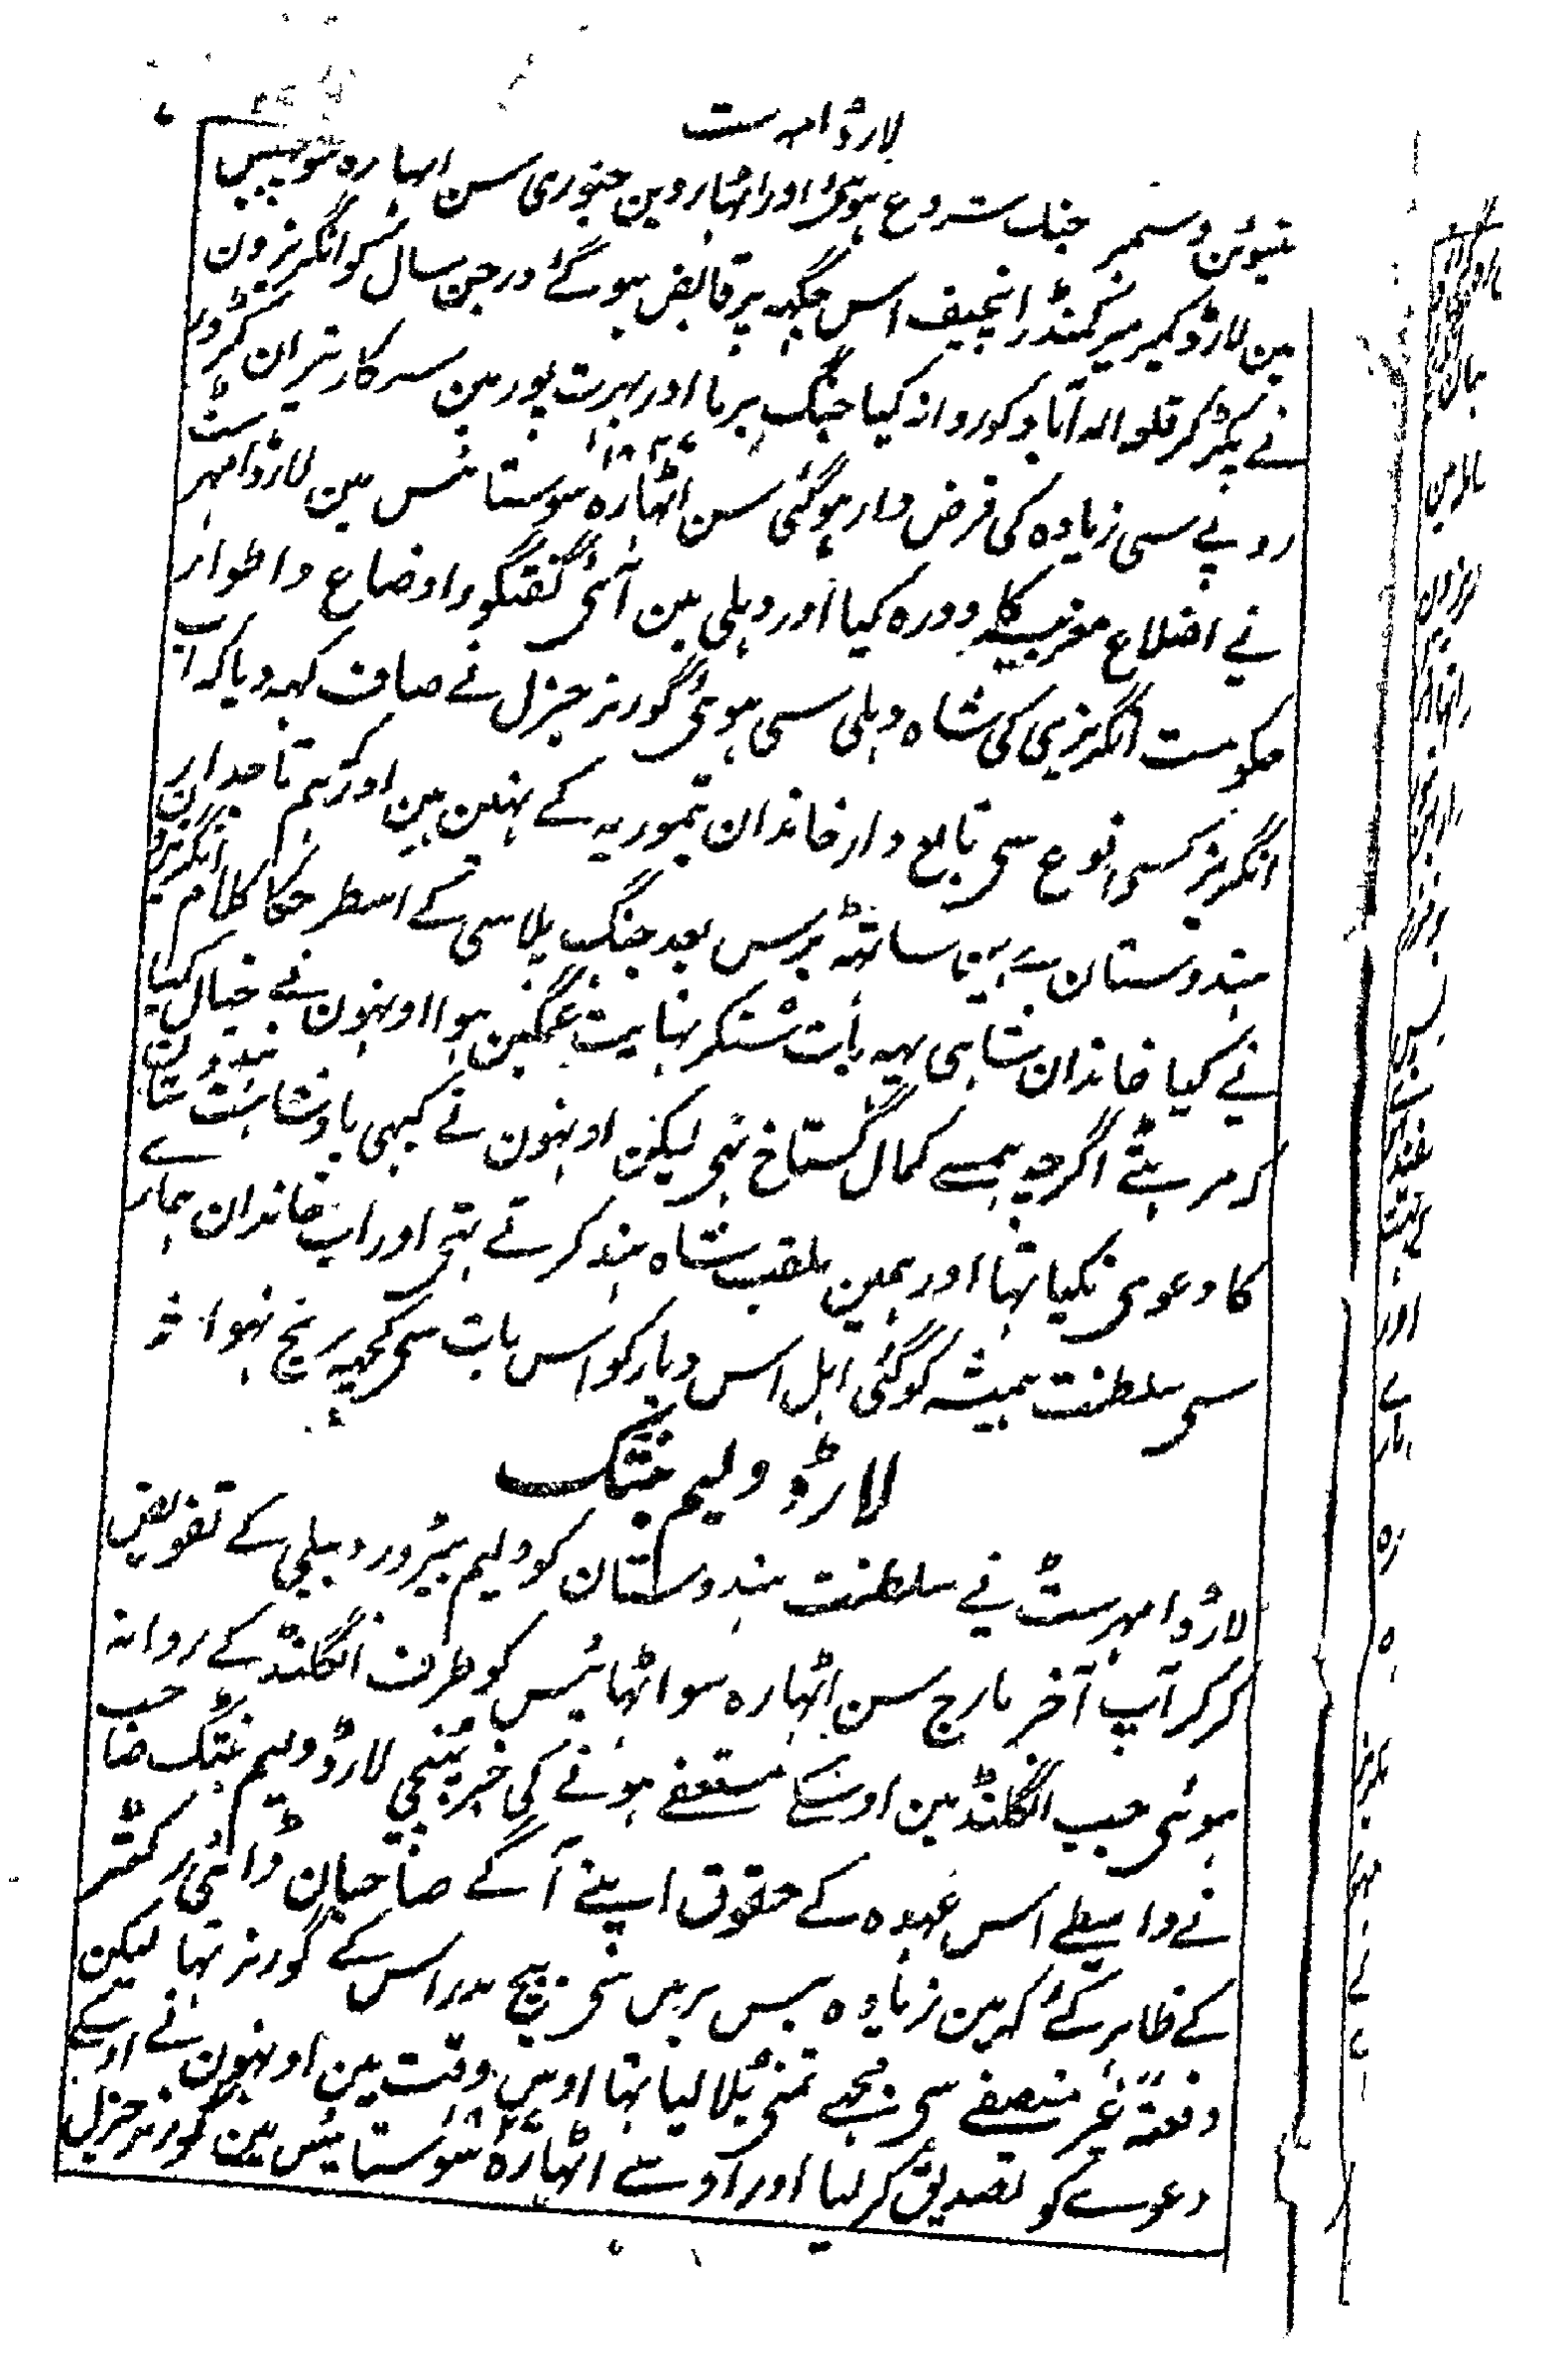 لارڈ امہرست
تیئوین دسمبر جنگ شروع ہوئی اور اٹہاروین جنوری سن اٹہارہ سو چھبیس
مین لارڈ کمبرمیر کمنڈر انچیف اس جگہہ پر قابض ہو گئے درجن سال کو انگریزون
نے پکڑ کر قلعہ الہ آباد کو روانہ کیا جنگ برما اور بہرت پور مین سرکار تیران کڑور
روپے سی زیادہ کی قرض دار ہوگئی سن اٹہارہ سو ستائس ۱۸۲۷ مین لارڈ امہرسٹ
نے اضلاع مغربیہ کا دورہ کیا اور دہلی مین آئی گفتگو و اوضاع و اطوار
حکومت انگریزی کی شاہ دہلی سی ہوئی گورنر جنرل نے صاف کہہ دیا کہ اب
انگریز کسی نوع سی تابع دار خاندان تموریہ کے نہین ہین اور ہم تاجدار
ہندوستان ہین ساٹہہ برس بعد جنگ پلاسی کے اسطرحکا کلام انگریزون
نے کیا خاندان شاہی یہہ بات سنکر نہایت غمگین ہوا اونہون نے خیال کیا
کہ مرہٹے اگرچہ ہمسے کمال گستاخ تہی لیکن اونہون نے کبہی بادشاہت ہندوستان
کا دعوی نکیا تہا اور ہمین بلقب شاہ ہند کرتے تہی اور اب خاندان ہمارے
سی سلطنت ہمیشہ کو گئی اہل اس دیار کو اس بات سی کچہہ رنج نہوا
لارڈ ولیم بنتنک
لارڈ امہرسٹ نے سلطنت ہندوستان کو ولیم بٹرورد بیلی کے تفویض
کر کر آپ آخر مارچ سن اٹہارہ سو اٹہائیس کو طرف انگلنڈ کے روانہ
ہوئی جب انگلنڈ مین اونکے مستعفے ہونے کی خبر پہنچی لارڈ ولیم بنتنک صاحب
نے واسطے اس عہدہ کے حقوق اپنے آگے صاحبان ڈائریکٹر
کے ظاہر کئے کہ مین زیادہ بیس برس سی بیچ مدراس کے گورنر تہا لیکن
دفعتہً غیر منصفے سی مجہے تمنی بلا لیا تہا اوس وقت مین اونہون نے اونکے
دعوے کو تصدیق کر لیا اور اوسے ۱۸۲۷ اٹہارہ سو ستائیس مین گورنر جنرل